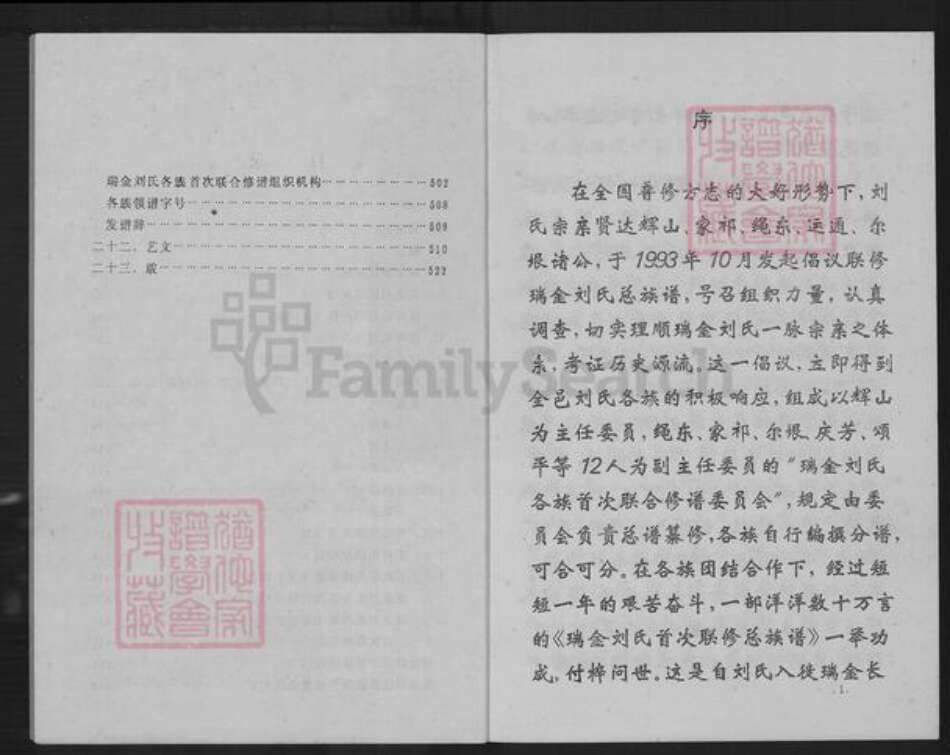 瑞金刘氏各族首次联合修谱组织机构……………502
各族领谱字号……………508
发谱辞……………509
二十二、艺文……………510
二十三、跋……………522
FamilySearch
譜學會
收藏
序
在全国普修方志的大好形势下,刘
氏宗亲贤达辉山、家祁、绳东、运通、尔
垠诸公,于1993年10月发起倡议联修
瑞金刘氏总族谱,号召组织力量,认真
调查,切实理顺瑞金刘氏一脉宗亲之体
系,考证历史源流。这一倡议,立即得到
全邑刘氏各族的积极响应,组成以辉山
为主任委员,绳东、家祁、尔垠、庆芳、颂
平等12人为副主任委员的“瑞金刘氏
各族首次联合修谱委员会”,规定由委
员会负责总谱纂修,各族自行编撰分谱,
可合可分。在各族团结合作下,经过短
短一年的艰苦奋斗,一部洋洋数十万言
的《瑞金刘氏首次联修总族谱》一举功
成,付梓问世。这是自刘氏入徙瑞金长
·1·